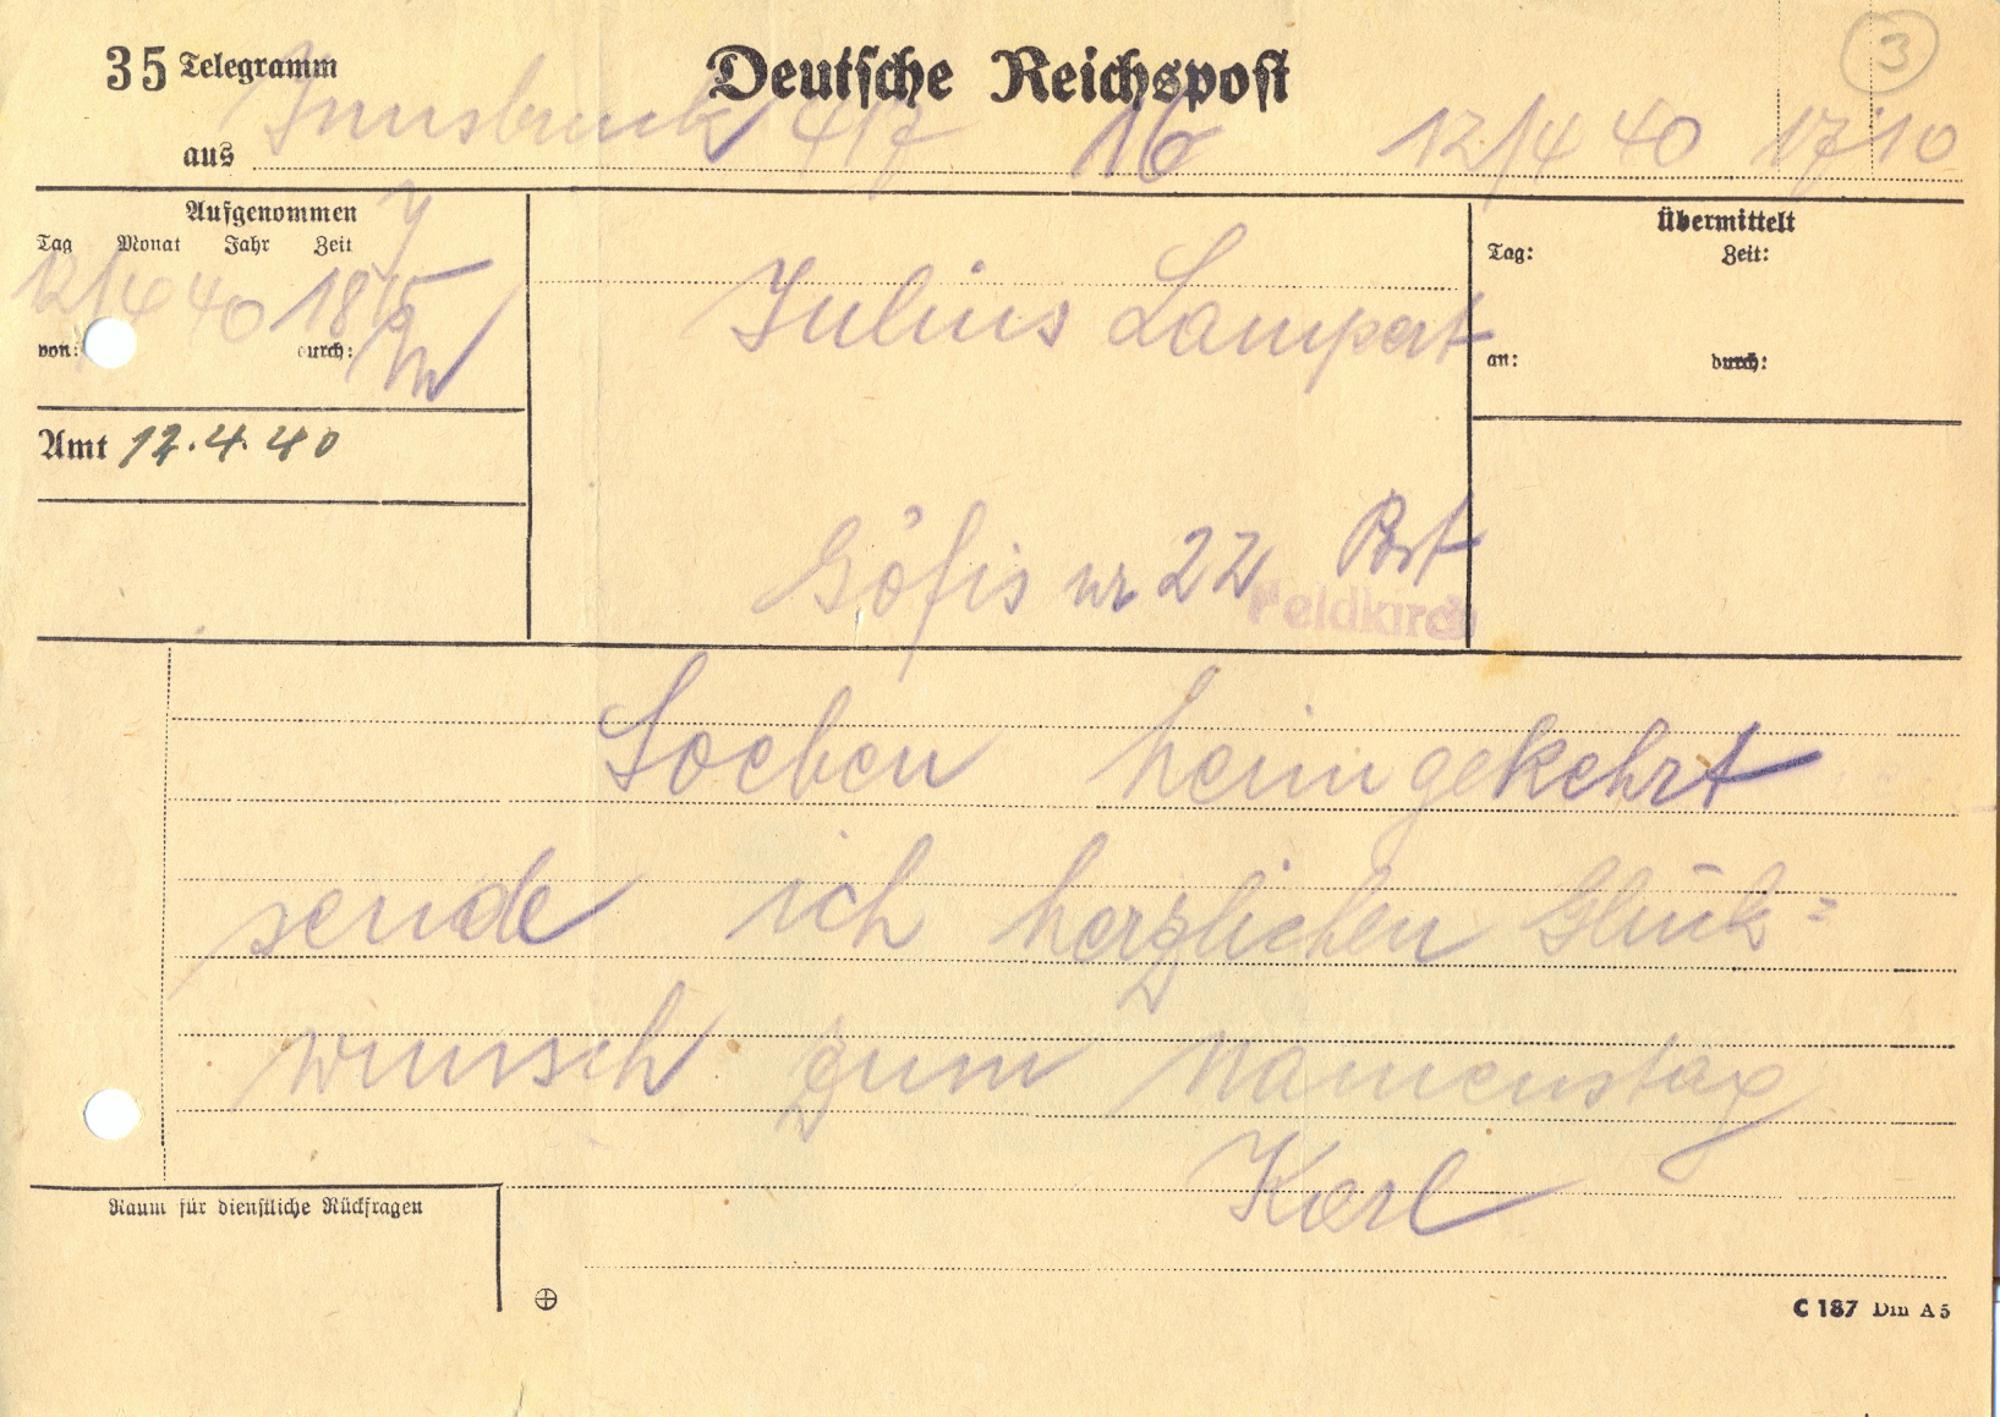 35 Telegramm Deutsche Reichspost 3
aus Innsbruck 417 16 12/4 40 1710
Aufgenommen
Tag Monat Jahr Zeit
12/4 40 1815
von: durch:
Amt 12.4.40
Julius Lampert
Göfis nr 22 Post
Feldkirch
Übermittelt
Tag: Zeit:
an: durch:
Soeben heimgekehrt
sende ich herzlichen Glück=
wunsch zum Namenstag
Karl
Raum für dienstliche Rückfragen
C 187 Din A5